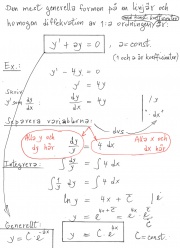 Den mest generella formen på en linjär och
homogen diffekvation av 1:a ordningen är:
y' + ay = 0 , a = const.
(1 och a är koefficienter)
Ex.:
y' - 4y = 0
Skriv y' = 4y
y' som dy/dx : dy/dx = 4y | /y · dx
Separera variablerna: dvs
Alla y och dy här dy/y = 4 dx Alla x och dx här
Integrera: ∫ dy/y = ∫ 4 dx
∫ 1/y dy = ∫ 4 dx
ln y = 4x + C | e
y = e^(4x + C) = e^4x · e^C
Generellt: y = C · e^-ax
y = C · e^4x C = const.